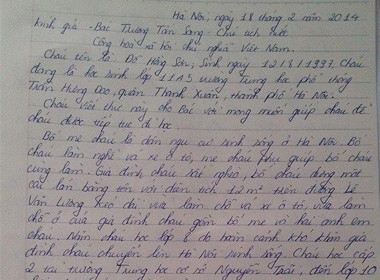 Hà Nội, ngày 18 tháng 2 năm 2014
Kính gửi - Bác Trương Tấn Sang - Chủ tịch nước
Cộng hoà xã hội chủ nghĩa Việt Nam.
Cháu tên là Đỗ Hồng Sơn, Sinh ngày 12/8/1997, Cháu
đang là học sinh lớp 11A5 trường Trung học phổ thông
Trần Hưng Đạo, quận Thanh Xuân, thành phố Hà Nội.
Cháu viết thư này cho Bác với mong muốn giúp cháu để
cháu được tiếp tục đi học.
Bố mẹ cháu là dân ngụ cư sinh sống ở Hà Nội. Bố
cháu làm nghề vá xe ô tô, mẹ cháu phụ giúp bố cháu
cùng làm. Gia đình cháu rất nghèo, bố cháu dựng một
cái lán bằng tôn với diện tích 12m² trên đường Lê
Văn Lương kéo dài vừa làm chỗ vá xe ô tô, vừa làm
chỗ ở của gia đình cháu gồm bố mẹ và hai anh em
cháu. Năm cháu học lớp 6 do hoàn cảnh khó khăn gia
đình cháu chuyển lên Hà Nội sinh sống. Cháu học cấp
2 tại trường Trung học cơ sở Nguyễn Trãi, đến lớp 10